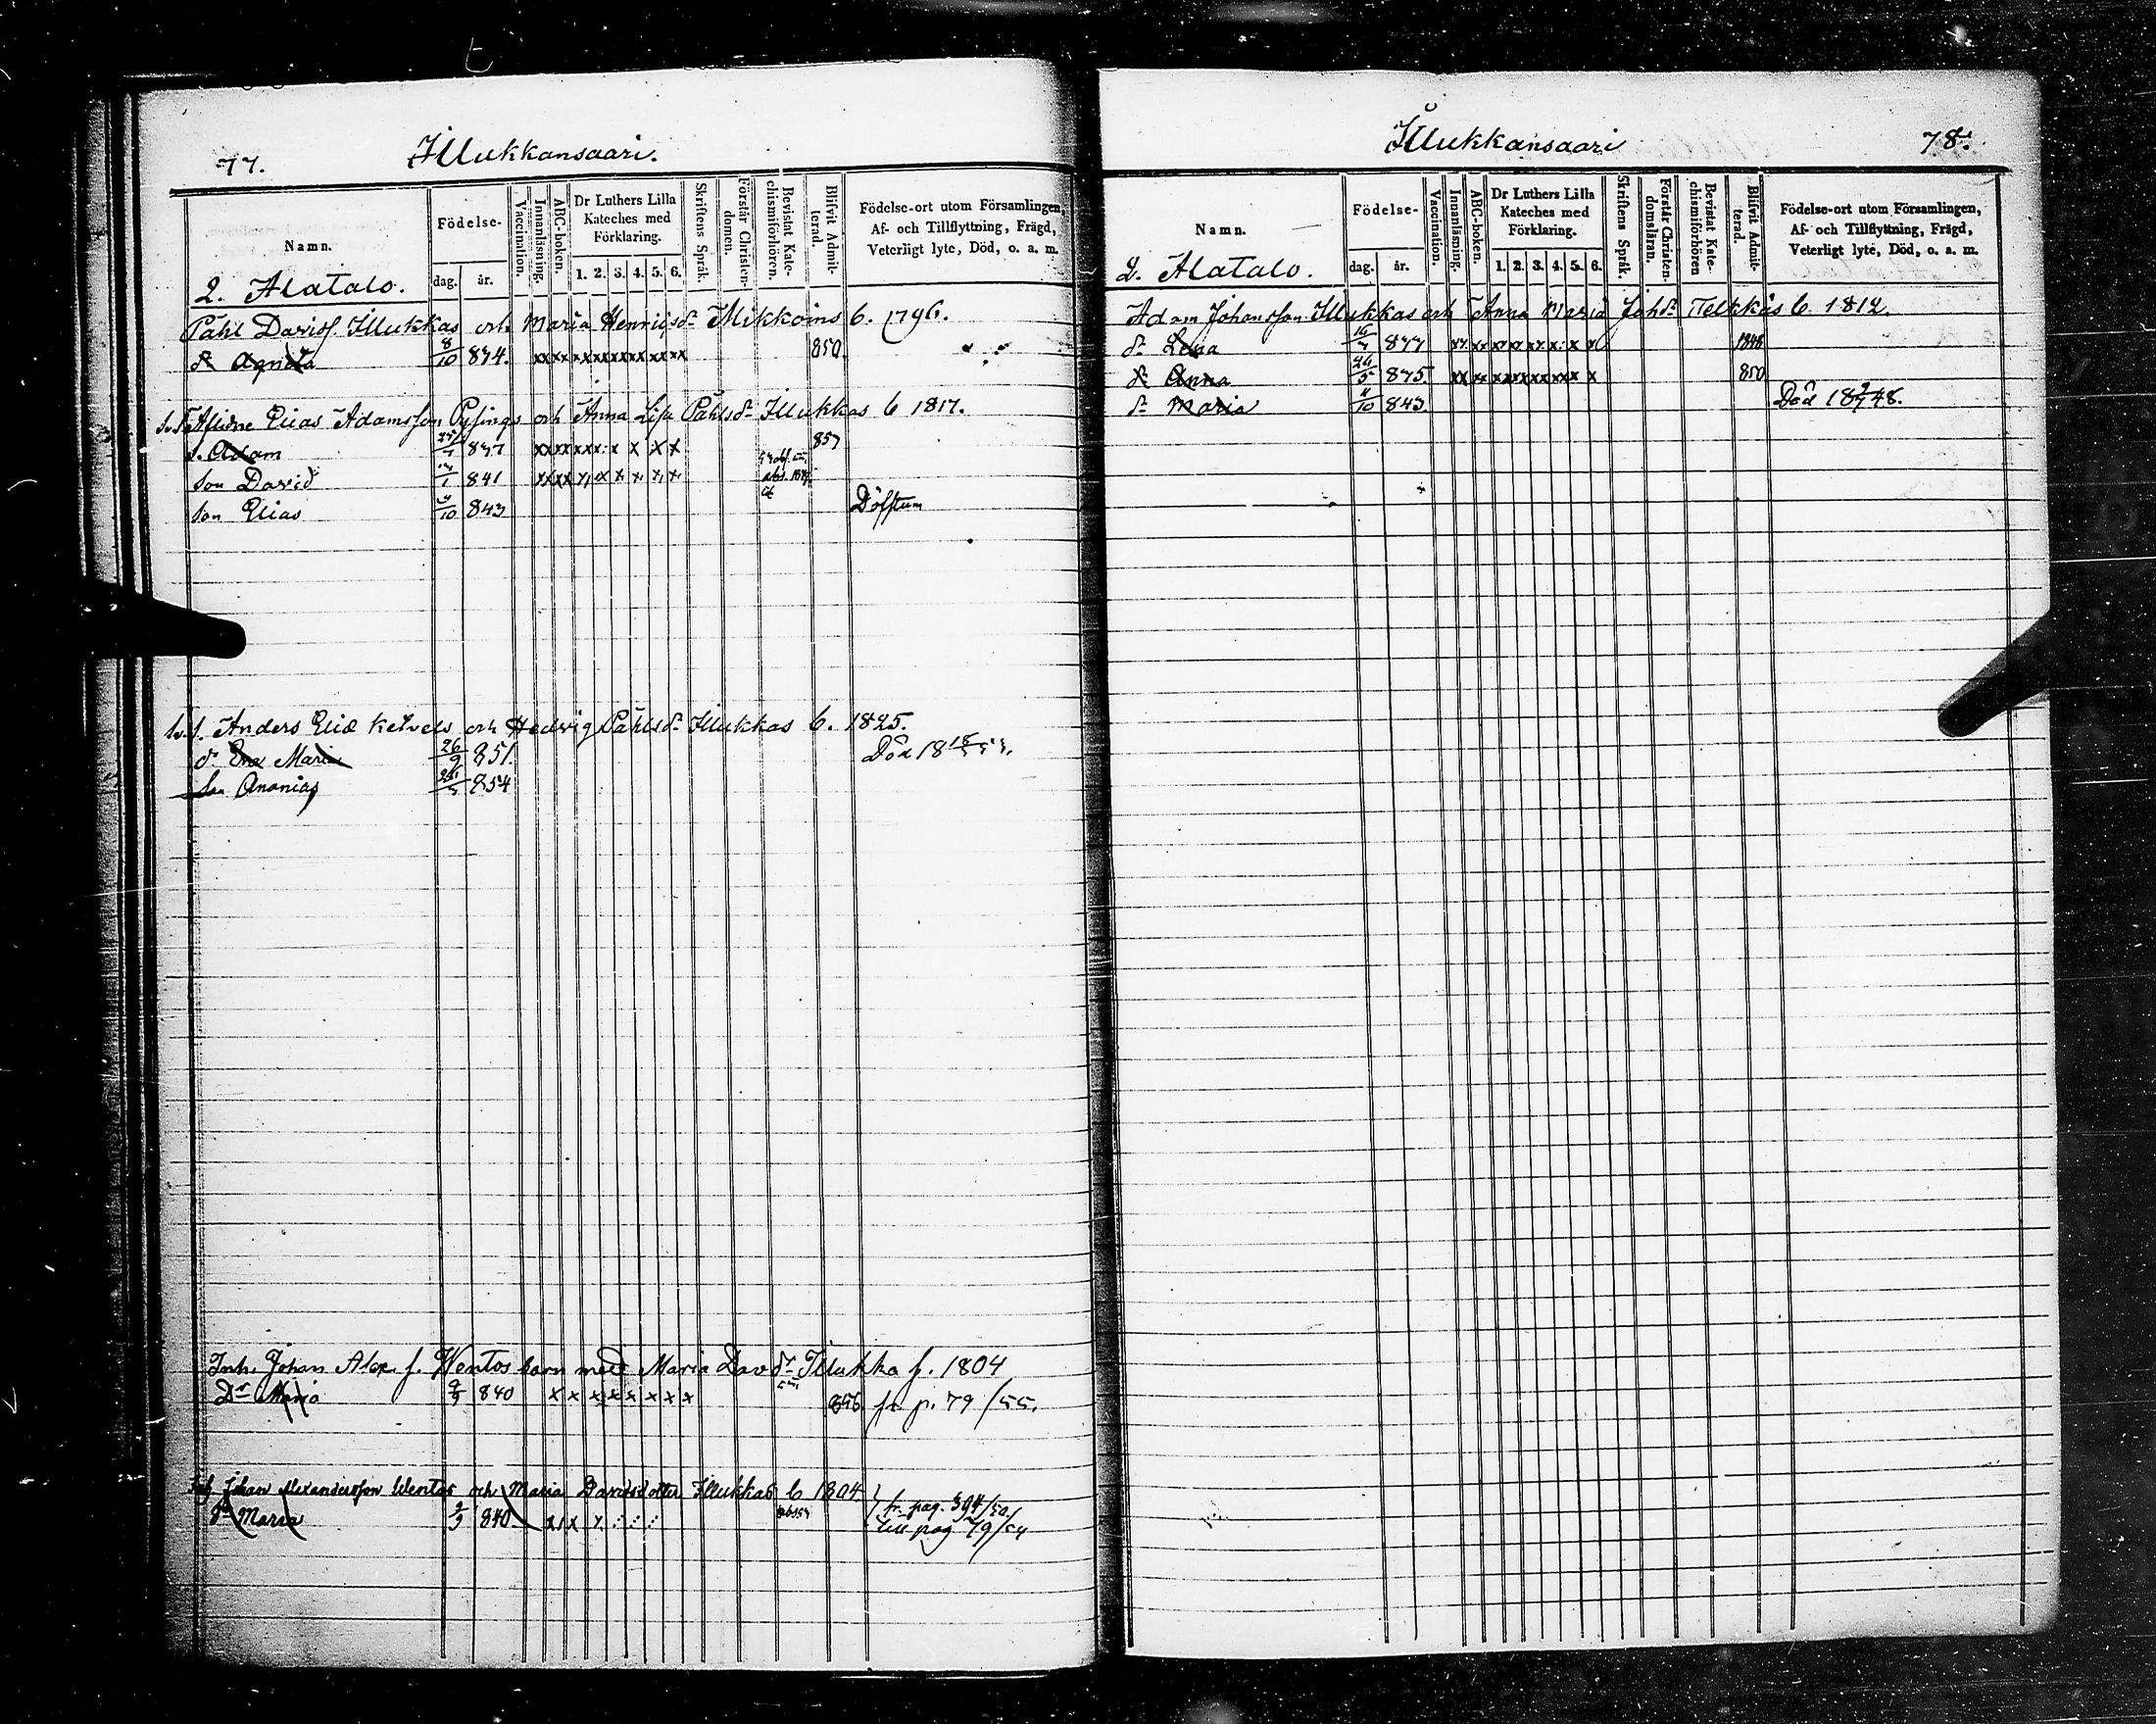 77. Illukkansaari.
Namn. Födelse- dag. år. Vaccination. Innanläsning. ABC-boken. Dr Luthers Lilla Kateches med Förklaring. 1. 2. 3. 4. 5. 6. Skriftens Språk. Förstår Christendomen. Bevistat Katechismiförhören. Blifvit Admitterad. Födelse-ort utom Församlingen, Af- och Tillflyttning, Frägd, Veterligt lyte, Död, o. a. m.
2. Alatalo.
Påhl Davids. Illukkas och Maria Henriksdr Mikkoins b. 1796.
dr Agneta 8/10 834. xx xx xx xx xx xx xx xx 850.
Aflidne Elias Adamsson Pysings och Anna Lisa Påhlsdr Illukkas b 1817.
s. Adam 25/ 837 857
Son David 841
Son Elias 4/10 843 Döfstum
Anders Eliæ Ketvels och Hedvig Påhlsdr Illukkas b. 1825.
dr Eva Maria 26/9 851. Död 18
Son Ananias 854
Inh. Johan Alex. s. Wentos barn med Maria Davdr Illukka f. 1804
Dr Maria 2/9 840 x x x x x x x x 856 fr p. 79 /55.
Inh Johan Alexandersson Wentos och Maria Davidsdotter Illukkas b 1804.
dr Maria 2/9 840 fr. pag. 394/50.
till pag 79/54
Illukkansaari 78.
Namn. Födelse- dag. år. Vaccination. Innanläsning. ABC-boken. Dr Luthers Lilla Kateches med Förklaring. 1. 2. 3. 4. 5. 6. Skriftens Språk. Förstår Christendomsläran. Bevistat Katechismiförhören Blifvit Admitterad. Födelse-ort utom Församlingen, Af- och Tillflyttning, Frägd, Veterligt lyte, Död, o. a. m.
2. Alatalo.
Adam Johansson Illukkas och Anna Maria Johdr Telkkäs b. 1812.
dr Lena 1848
dr Anna 26/5 835. 850
dr Maria 4/10 843 Död 18 48.